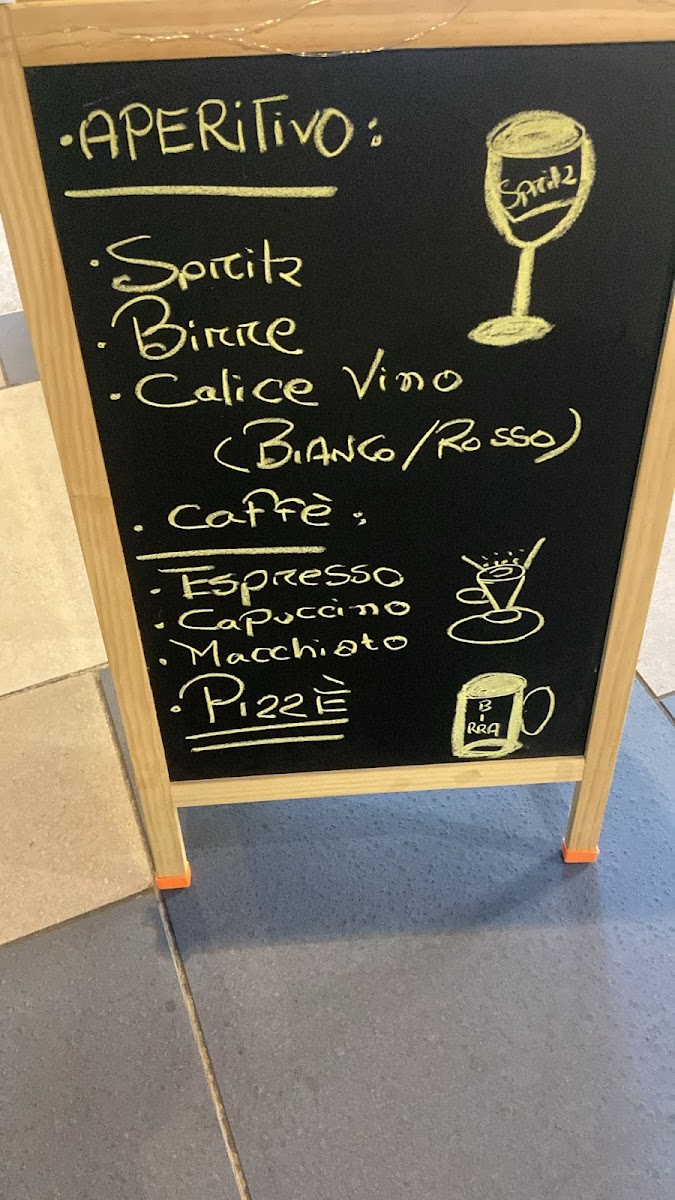 · APERITIVO :
Spritz
· Spritz
· Birre
· Calice Vino
(BIANCO/ROSSO)
· Caffè :
· Espresso
· Capuccino
· Macchiato
· PIZZÈ
B
I
RRA